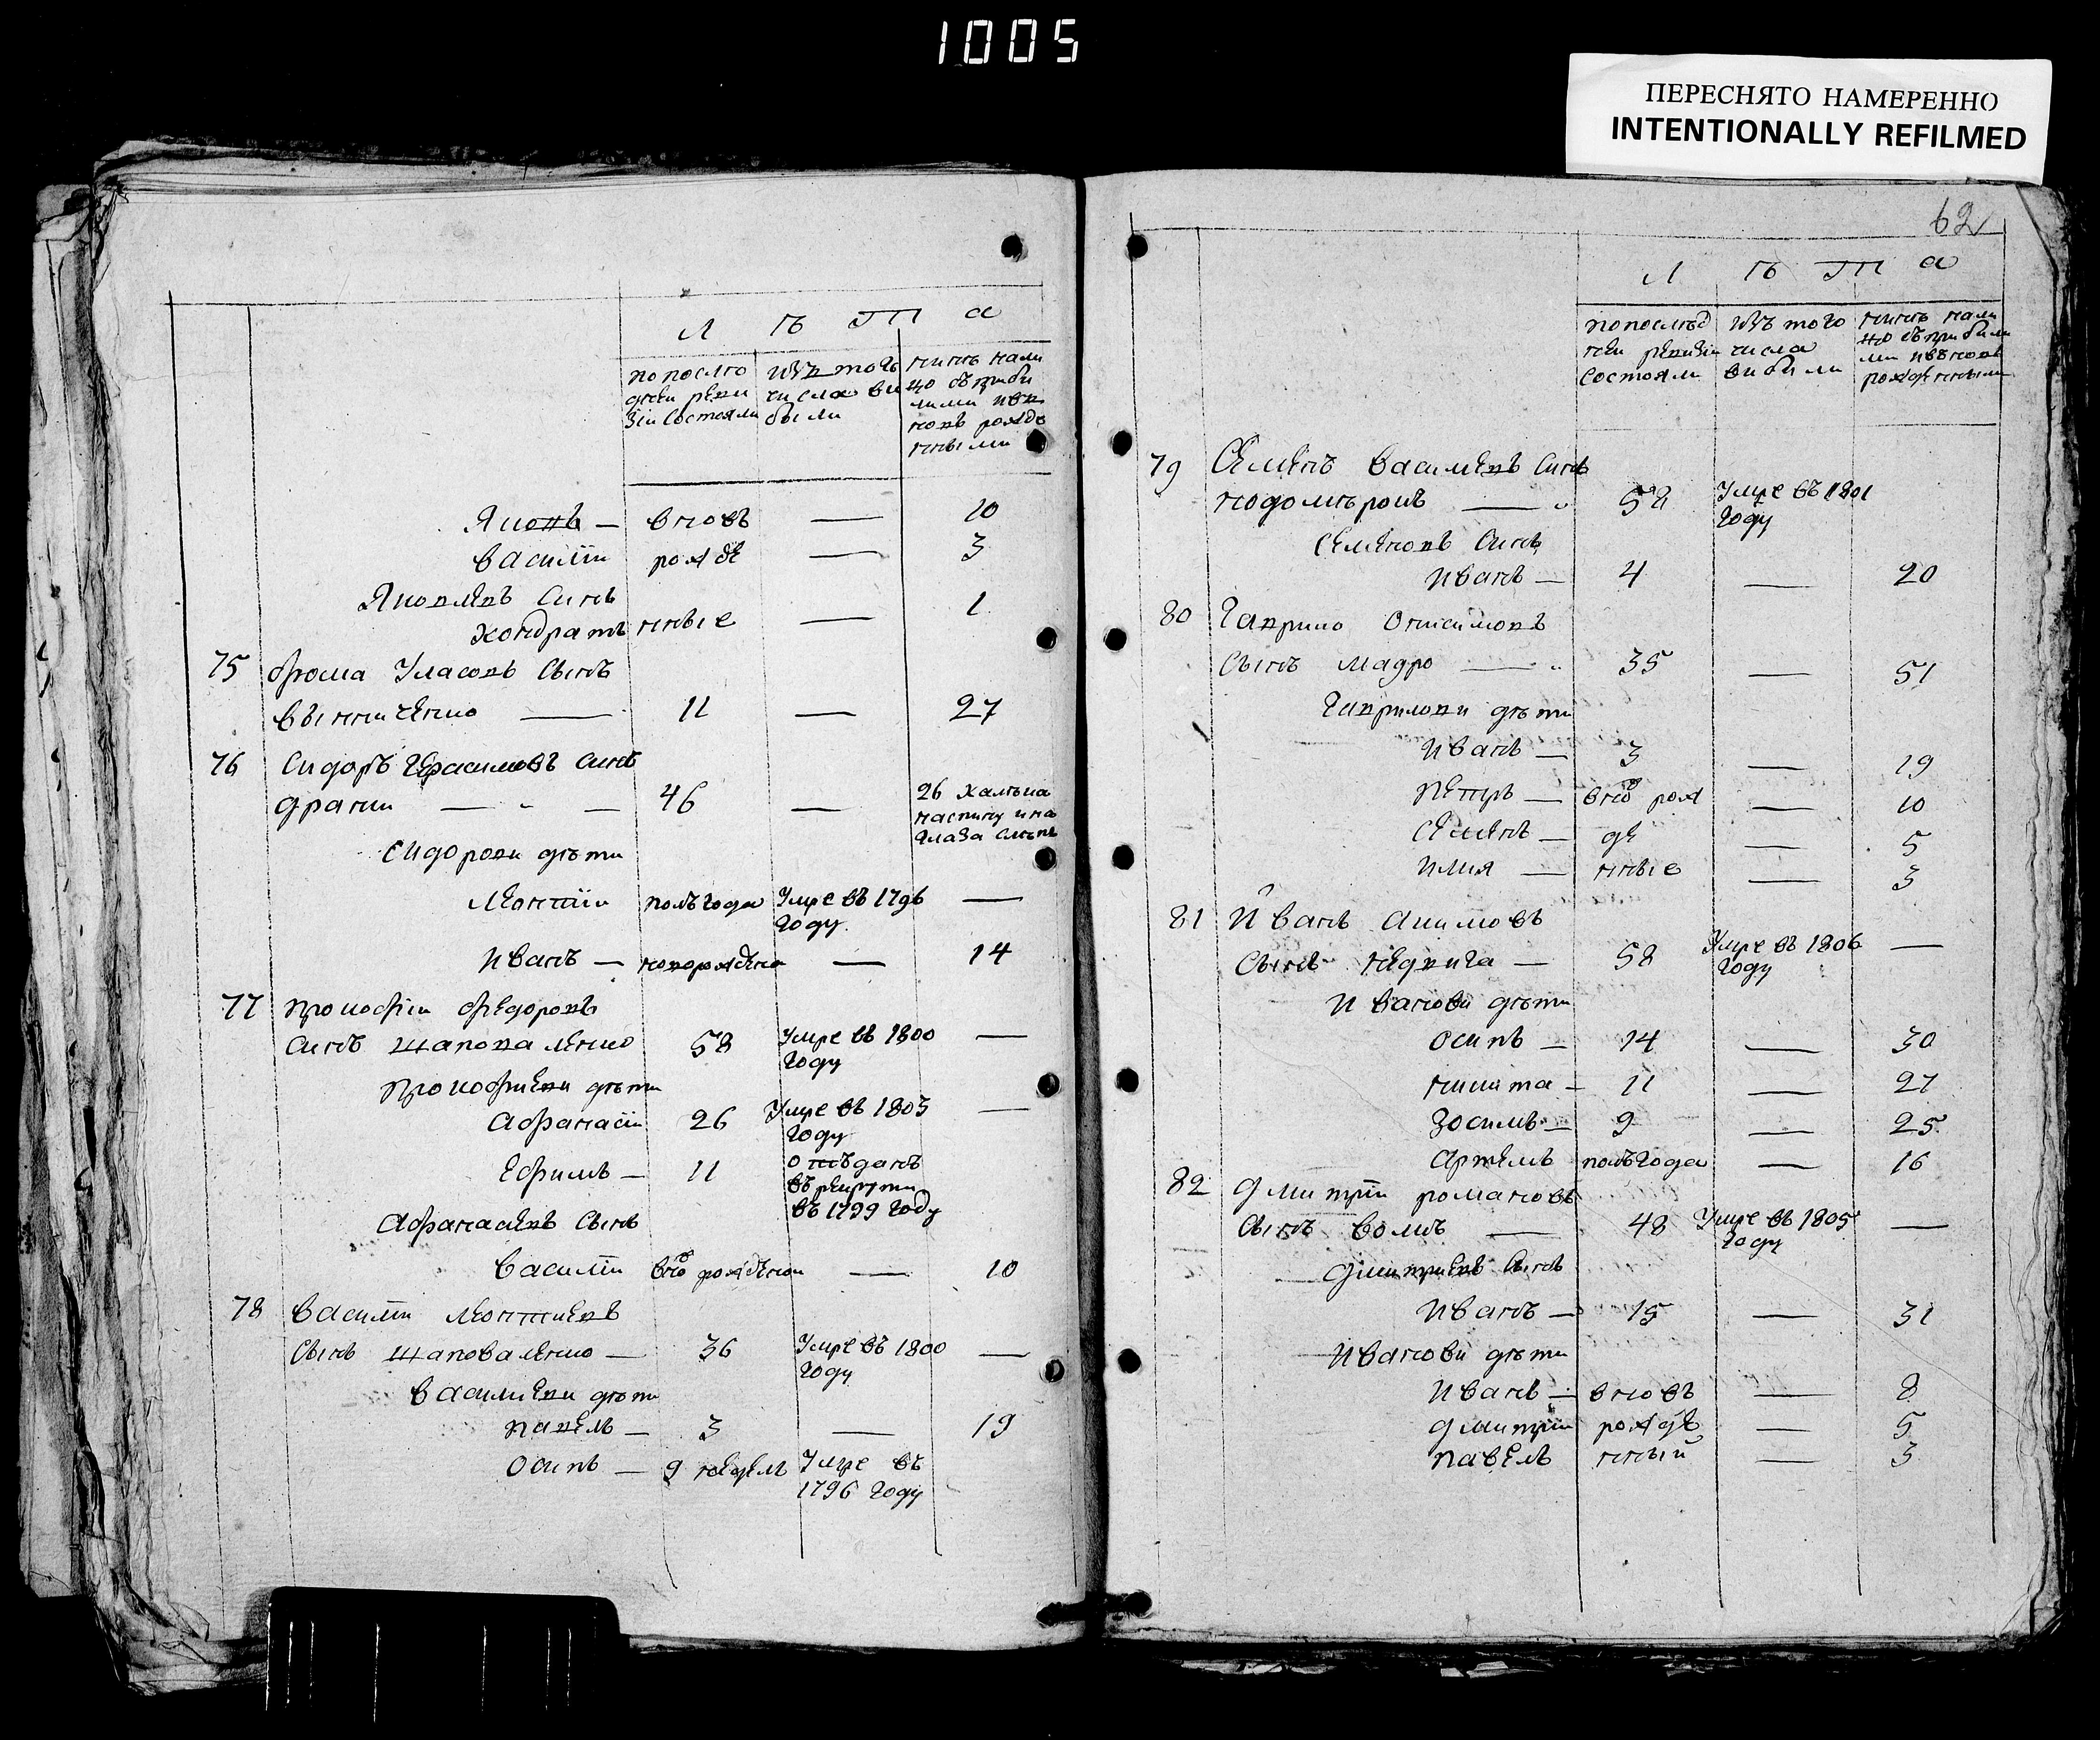 1005
ПЕРЕСНЯТО НАМЕРЕННО
INTENTIONALLY REFILMED
Л ѣ т а
попослѣ днеи реви зіи состояли
изъ того числа вы были
нинѣ нали цо съ приби лими ивъ новъ рожде нными
Яковъ — вновь — 10
Василіи рожде — 3
Яковлевъ Синъ
Кондратъ нные — 1
75 Фрома Уласовъ Сынъ
Винниченко — 11 — 27
76 Сидоръ Герасимовъ Синъ
драгии — 46 — 26
глаза
Сидорови дѣти
Леонтіи полъгода Умре въ 1796 году —
Иванъ — новорождено — 14
77 Прокофіи Федоровъ
Синъ Шаповаленко 58 Умре въ 1800 году —
Прокофиеви дѣти
Афанасіи 26 Умре въ 1803 году —
Ефимъ — 11 отъданъ въ рекруты въ 1799 году
Афанасиевъ Сынъ
Василіи вно рожденои — 10
78 Василіи Леонтиевъ
Сынъ Шаповаленко — 36 Умре въ 1800 году —
Василиеви дѣти
Павелъ — 3 — 19
Осипъ — 9 недель Умре въ 1796 году
62
Л ѣ т а
попослѣд неи ревизіи состояли
изъ того числа вибили
нинѣ нали цо съ прибили ми ивъновъ рожденными
79 Семенъ Василиевъ Синъ
Кодомѣрои — 58 Умре въ 1801 году
Семеновъ Синъ
Иванъ — 4 — 20
80 Гаврило Онисимовъ
Сынъ Мадро — 35 — 51
Гаврилови дѣти
Иванъ — 3 — 19
Петръ — вно рож — 10
Семенъ — де — 5
Илия — нные — 3
81 Иванъ Акимовъ
Сынъ — 58 Умре въ 1806 году —
Иванови дѣти
Осипъ — 14 — 30
Никита — 11 — 27
Зосимъ — 9 — 25
Артемъ полъгода — 16
82 Дмитріи Романовъ
Сынъ Волкъ — 48 Умре въ 1805 году —
Дмитриевъ Сынъ
Иванъ — 15 — 31
Иванови дѣти
Иванъ — вновъ — 8
Дмитріи рожде — 5
Павелъ нный — 3